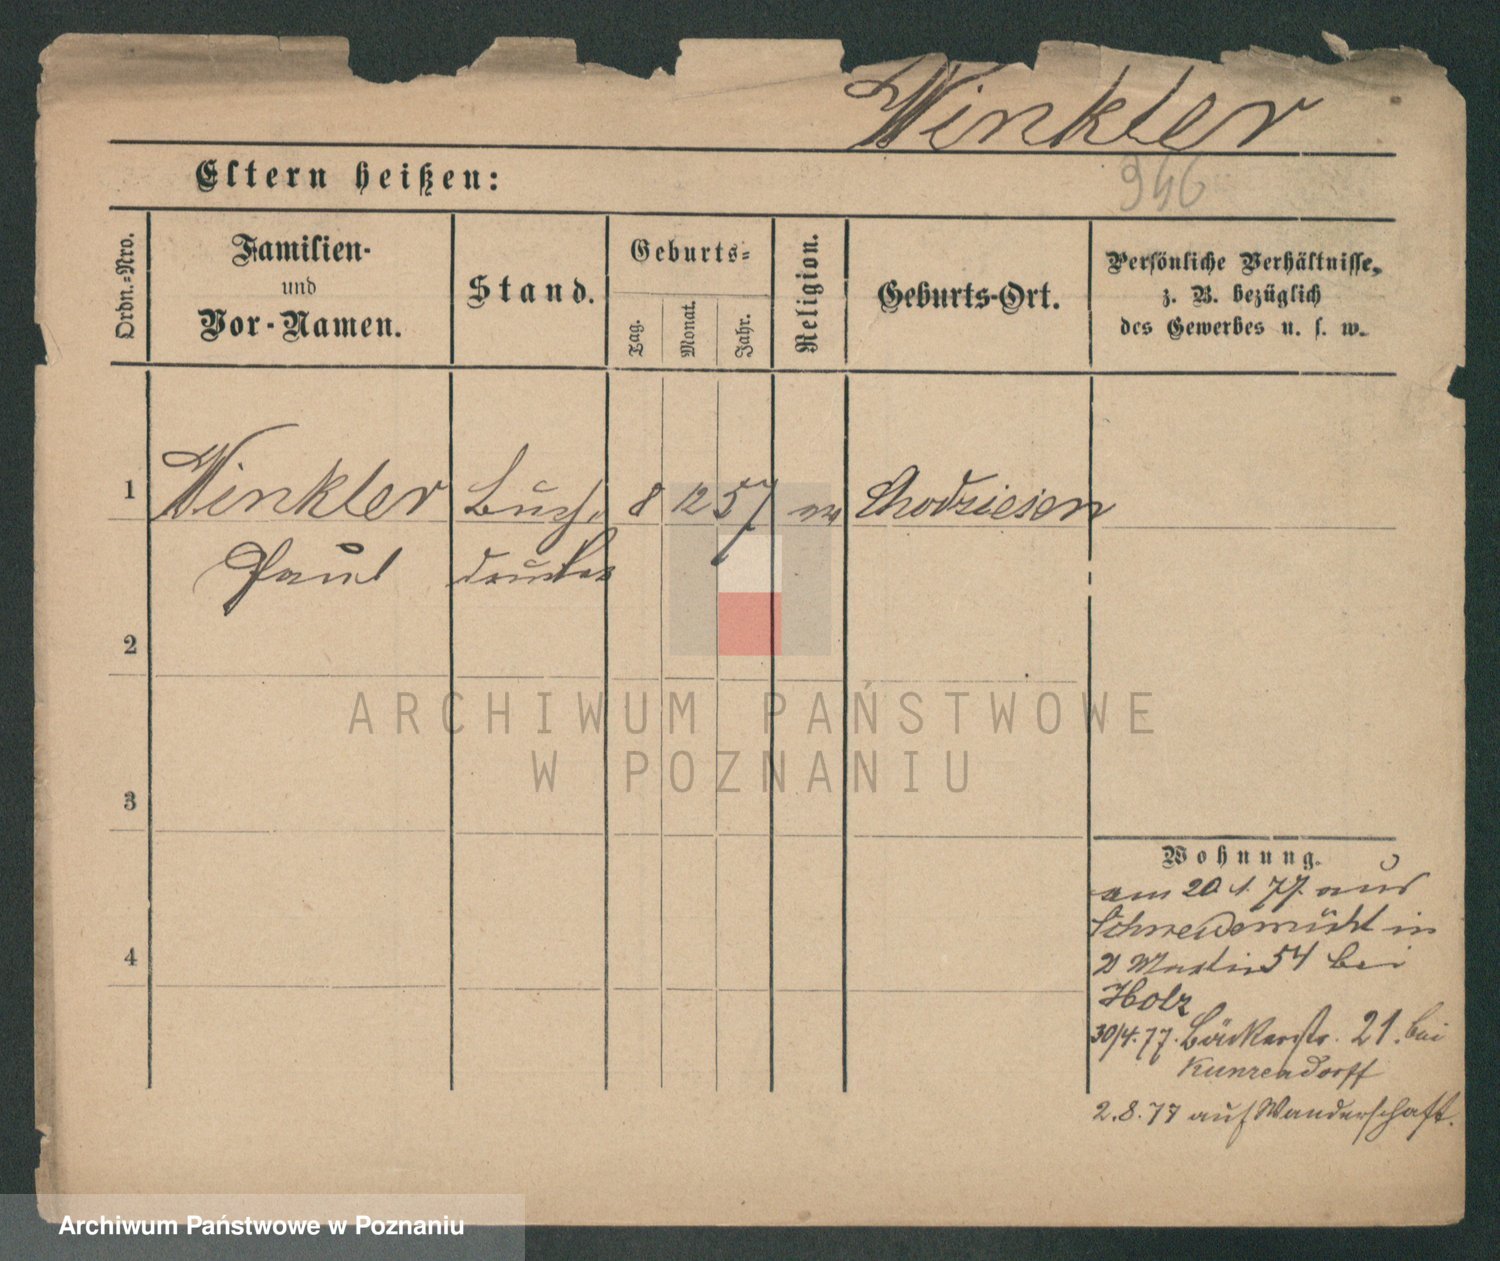 Winkler
946
Eltern heißen:
Ordn.=Nro.
Familien-
und
Vor-Namen.
Stand.
Geburts=
Tag.
Monat.
Jahr.
Religion.
Geburts-Ort.
Persönliche Verhältnisse,
z. B. bezüglich
des Gewerbes u. s. w.
1
Winkler
Paul
Buch-
drucker
8
12
57
ev
Chodziesen
2
3
4
Wohnung.
am 20.1.77. aus
Schneidemühl in
Martin 54 bei
Holz
30/4.77. Bäckerstr. 21. bei
Kunzendorff
2.8.77 auf Wanderschaft.
ARCHIWUM PAŃSTWOWE
W POZNANIU
Archiwum Państwowe w Poznaniu